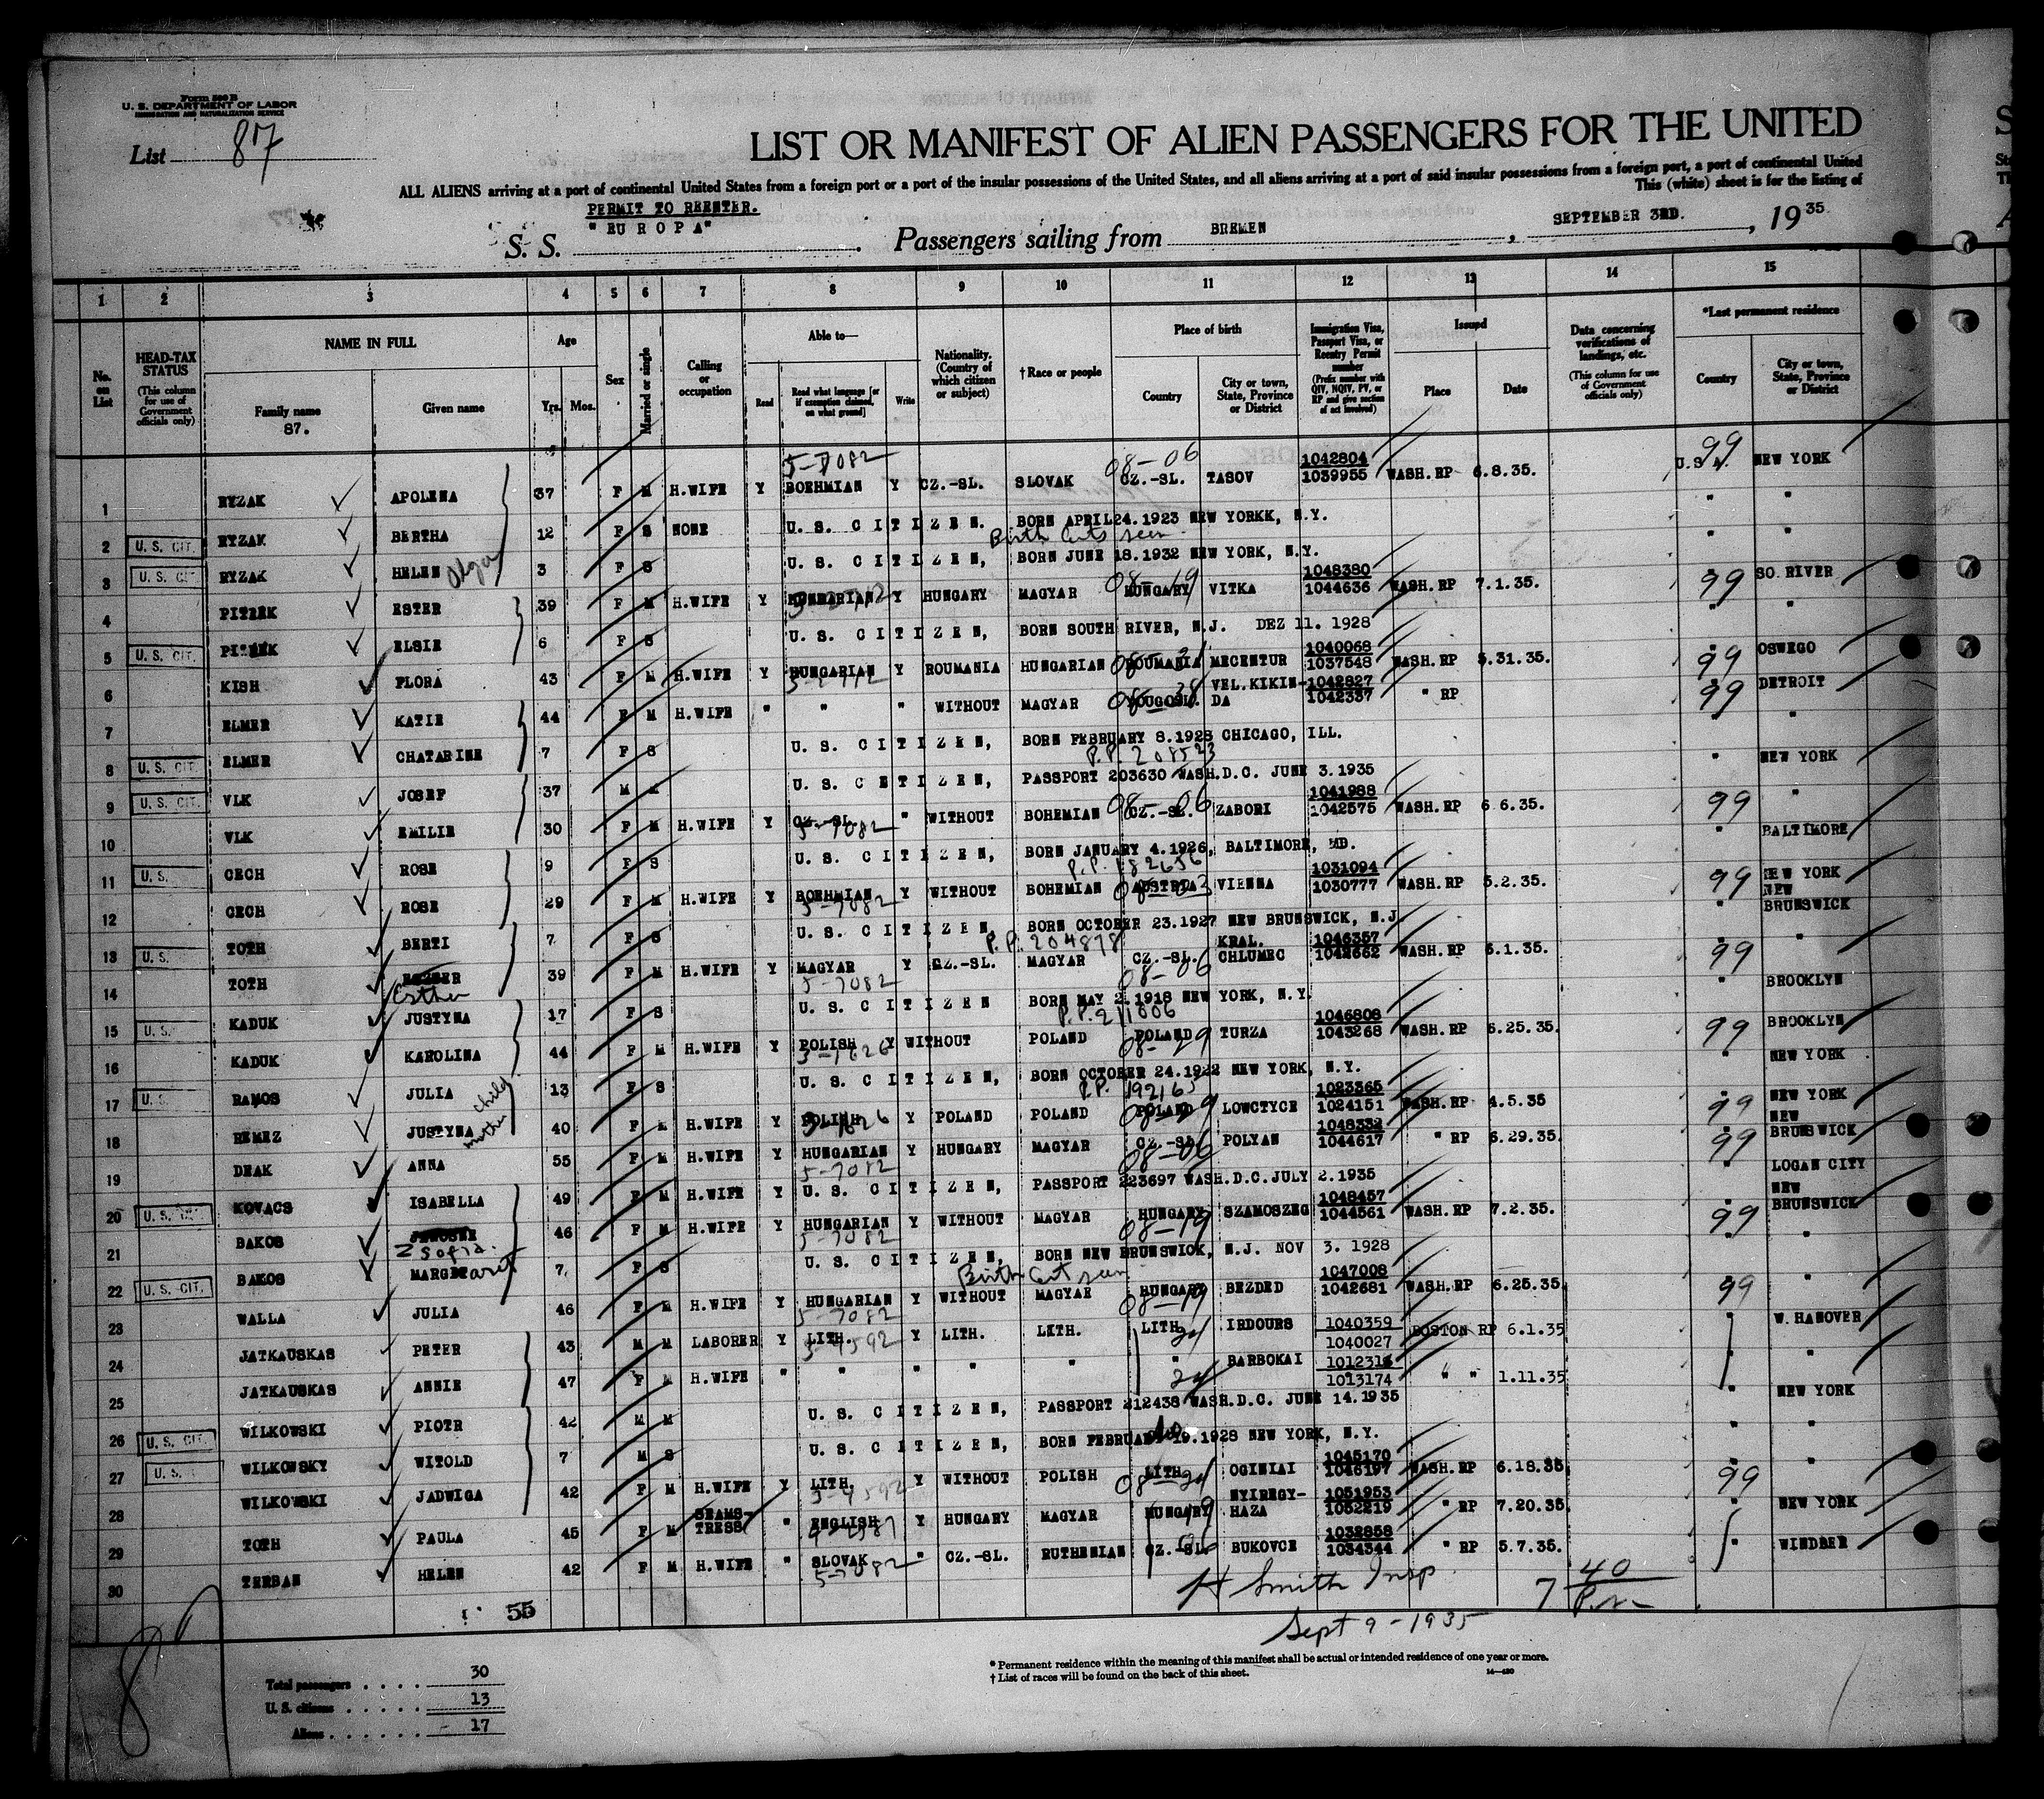 Form 500 B
U. S. DEPARTMENT OF LABOR
IMMIGRATION AND NATURALIZATION SERVICE
List 87
LIST OR MANIFEST OF ALIEN PASSENGERS FOR THE UNITED
ALL ALIENS arriving at a port of continental United States from a foreign port or a port of the insular possessions of the United States, and all aliens arriving at a port of said insular possessions from a foreign port, a port of continental United
This (white) sheet is for the listing of
PERMIT TO REENTER.
S. S. "EUROPA" Passengers sailing from BREMEN, SEPTEMBER 3RD., 1935
1 2 3 4 5 6 7 8 9 10 11 12 13 14 15
No. on List
HEAD-TAX STATUS (This column for use of Government officials only)
NAME IN FULL
Family name 87.
Given name
Age
Yrs. Mos.
Sex
Married or single
Calling or occupation
Able to—
Read
Read what language [or if exemption claimed, on what ground]
Write
Nationality. (Country of which citizen or subject)
† Race or people
Place of birth
Country
City or town, State, Province or District
Immigration Visa, Passport Visa, or Reentry Permit number (Prefix number with QIV, NQIV, PV, or RP and give section of act involved)
Issued
Place
Date
Data concerning verifications of landings, etc. (This column for use of Government officials only)
*Last permanent residence
Country
City or town, State, Province or District
5-7082 08-06 1042804 99
1 RYZAK APOLENA 37 F M H.WIFE Y BOEHMIAN Y CZ.-SL. SLOVAK CZ.-SL. TASOV 1039955 WASH.RP 6.8.35. U.S.A. NEW YORK
2 U. S. CIT. RYZAK BERTHA 12 F S NONE U. S. CITIZEN. BORN APRIL 24.1923 NEW YORKK, N.Y. " "
Birth Certs seen
3 U. S. CIT. RYZAK HELEN Olga 3 F S U. S. CITIZEN, BORN JUNE 18.1932 NEW YORK, N.Y. " "
1048380
4 PITREK ESTER 39 F M H.WIFE Y Y HUNGARY MAGYAR HUNGARY 08-19 VITKA 1044636 WASH.RP 7.1.35. 99 SO. RIVER
5 U. S. CIT. ELSIE 6 F S U. S. CITIZEN, BORN SOUTH RIVER, N.J. DEZ 11. 1928 " "
1040068
6 KISH FLORA 43 F M H.WIFE Y HUNGARIAN Y ROUMANIA HUNGARIAN ROUMANIA MECENTUR 1037548 WASH.RP 5.31.35. 99 OSWEGO
VEL.KIKIN- 1042827
7 ELMER KATIE 44 F M H.WIFE " " " WITHOUT MAGYAR YOUGOSL. DA 1042337 " RP 99 DETROIT
8 U. S. CIT. ELMER CHATARINE 7 F S U. S. CITIZEN, BORN FEBRUARY 8.1928 CHICAGO, ILL. "
P.P. 208523
9 U. S. CIT. VLK JOSEF 37 M M U. S. CETIZEN, PASSPORT 203630 WASH.D.C. JUNE 3.1935 " NEW YORK
1041988
10 VLK EMILIE 30 F M H.WIFE Y CZ.-SL. 5-7082 " WITHOUT BOHEMIAN CZ.-SL. 08-06 ZABORI 1042575 WASH.RP 6.6.35. 99 "
11 U. S. CECH ROSE 9 F S U. S. CITIZEN, BORN JANUARY 4.1926, BALTIMORE, MD. " BALTIMORE
P.P. 182656 1031094
12 CECH ROSE 29 F M H.WIFE Y BOEHMIAN 5-7082 Y WITHOUT BOHEMIAN AUSTRIA VIENNA 1030777 WASH.RP 5.2.35. 99 NEW YORK
13 U. S. TOTH BERTI 7 F S U. S. CITIZEN BORN OCTOBER 23.1927 NEW BRUNSWICK, N.J. " NEW BRUNSWICK
P.P. 204878 KRAL. 1046357
14 TOTH Esther 39 F M H.WIFE Y MAGYAR 5-7082 Y CZ.-SL. MAGYAR CZ.-SL. 08-06 CHLUMEC 1042662 WASH.RP 6.1.35. 99 "
15 U. S. KADUK JUSTYNA 17 F S U. S. CITIZEN BORN MAY 2.1918 NEW YORK, N.Y. " BROOKLYN
P.P. 211806 1046808
16 KADUK KAROLINA 44 F M H.WIFE Y POLISH 5-1626 Y WITHOUT POLAND POLAND 08-29 TURZA 1043268 WASH.RP 6.25.35. 99 BROOKLYN
17 U. S. RAMOS JULIA child 13 F S U. S. CITIZEN, BORN OCTOBER 24.1922 NEW YORK, N.Y. " NEW YORK
P.P. 192165 1023365
18 REMEZ JUSTYNA mother 40 F M H.WIFE Y POLISH Y POLAND POLAND POLAND LOWCTYCE 1024151 WASH.RP 4.5.35 99 NEW YORK
1048332
19 DEAK ANNA 55 F M H.WIFE Y HUNGARIAN 5-7082 Y HUNGARY MAGYAR CZ.-SL. 08-06 POLYAN 1044617 " RP 6.29.35. 99 NEW BRUNSWICK
20 U. S. KOVACS ISABELLA 49 F M H.WIFE Y U. S. CITIZEN, PASSPORT 223697 WASH.D.C. JULY 2.1935 " LOGAN CITY
1048457
21 BAKOS Zsofia. 46 F M H.WIFE Y HUNGARIAN 5-7082 Y WITHOUT MAGYAR HUNGARY 08-19 SZAMOSZEG 1044561 WASH.RP 7.2.35. 99 NEW BRUNSWICK
22 U. S. CIT. BAKOS MARGaret 7 F S U. S. CITIZEN, BORN NEW BRUNSWICK, N.J. NOV 3. 1928 " "
Birth Cert seen 1047008
23 WALLA JULIA 46 F M H.WIFE Y HUNGARIAN 5-7082 Y WITHOUT MAGYAR HUNGARY 08-19 BEZDED 1042681 WASH.RP 6.25.35 99 "
1040359
24 JATKAUSKAS PETER 43 M M LABORER Y LITH. 5-4592 Y LITH. LITH. LITH. IRDOURS 1040027 BOSTON RP 6.1.35 W. HANOVER
25 JATKAUSKAS ANNIE 47 F M H.WIFE " " " " " " BARBOKAI 1013174 " " 1.11.35 " "
26 U. S. CIT. WILKOWSKI PIOTR 42 M M U. S. CITIZEN, PASSPORT 212438 WASH.D.C. JUNE 14.1935 " NEW YORK
27 U. S. WILKOWSKY WITOLD 7 M S U. S. CITIZEN, BORN FEBRUARY 19.1928 NEW YORK, N.Y. " "
1045170
28 WILKOWSKI JADWIGA 42 F M H.WIFE Y LITH. 5-4592 Y WITHOUT POLISH LITH. OGINIAI 1046197 WASH.RP 6.18.35. 99 "
SEAMS- NYIREGY- 1051953
29 TOTH PAULA 45 F M TRESS " ENGLISH Y HUNGARY MAGYAR HUNGARY HAZA 1052219 " RP 7.20.35. " NEW YORK
1032858
30 TERBAN HELEN 42 F M H.WIFE " SLOVAK 5-7082 " CZ.-SL. RUTHENIAN CZ.-SL. BUKOVCE 1034344 " RP 5.7.35. " WINDBER
H Smith Insp. 7 40
55
Sept 9-1935
87
Total passengers 30
U. S. citizens 13
Aliens 17
* Permanent residence within the meaning of this manifest shall be actual or intended residence of one year or more.
† List of races will be found on the back of this sheet.
14—420